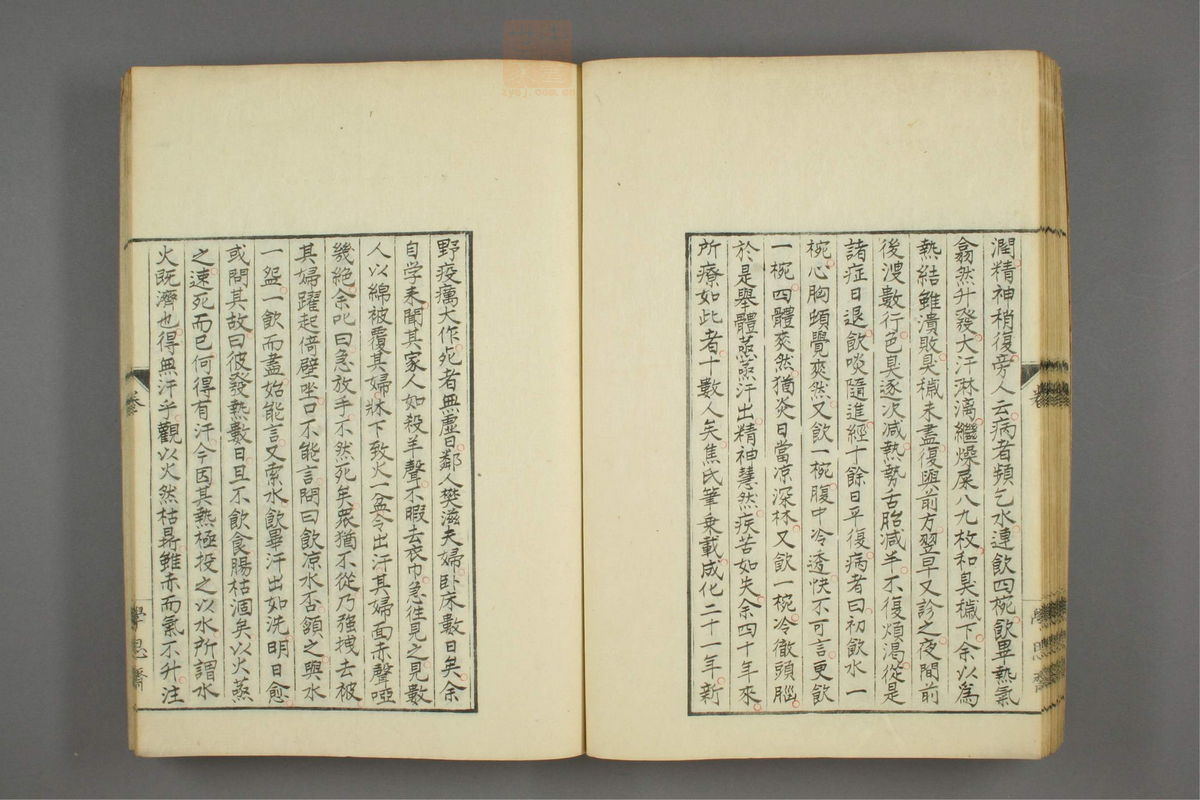 潤精神稍復旁人云病者頻乞水連飲四椀飲畢熱氣
翕然升發大汗淋漓繼燥屎八九枚和臭穢下余以爲
熱結雖潰敗臭穢未盡復與前方翌早又診之夜間前
後溲數行笆臭逐次减熱勢舌胎减半不復煩渴從是
諸症日退飲啖隨進經十餘日平復病者曰初飲水一
椀心胸頗覺爽然又飲一椀腹中冷透快不可言更飲
一椀四體爽然猶炎日當凉深林又飲一椀冷徹頭腦
於是舉體蒸蒸汗出精神慧然疾苦如失余四十年來
所療如此者十數人矣焦氏筆乗載成化二十一年新
野疫癘大作死者無虛日鄰人樊滋夫婦卧床數日矣余
自学来聞其家人如殺羊聲不暇去衣巾急往見之見數
人以綿被覆其婦牀下致火一盆令出汗其婦面赤聲啞
幾絶余叱曰急放手不然死矣衆猶不從乃強拽去被
其婦躍起倚壁坐口不能言問曰飲凉水否頷之與水
一盌一飲而盡始能言又索水飲畢汗出如洗明日愈
或問其故曰彼發熱數日且不飲食腸枯涸矣以火蒸
之速死而已何得有汗今因其熱極投之以水所謂水
火既濟也得無汗乎觀以火然枯鼎雖赤而氣不升注
卷
學思齋
卷
學思齋
zysj.com.cn